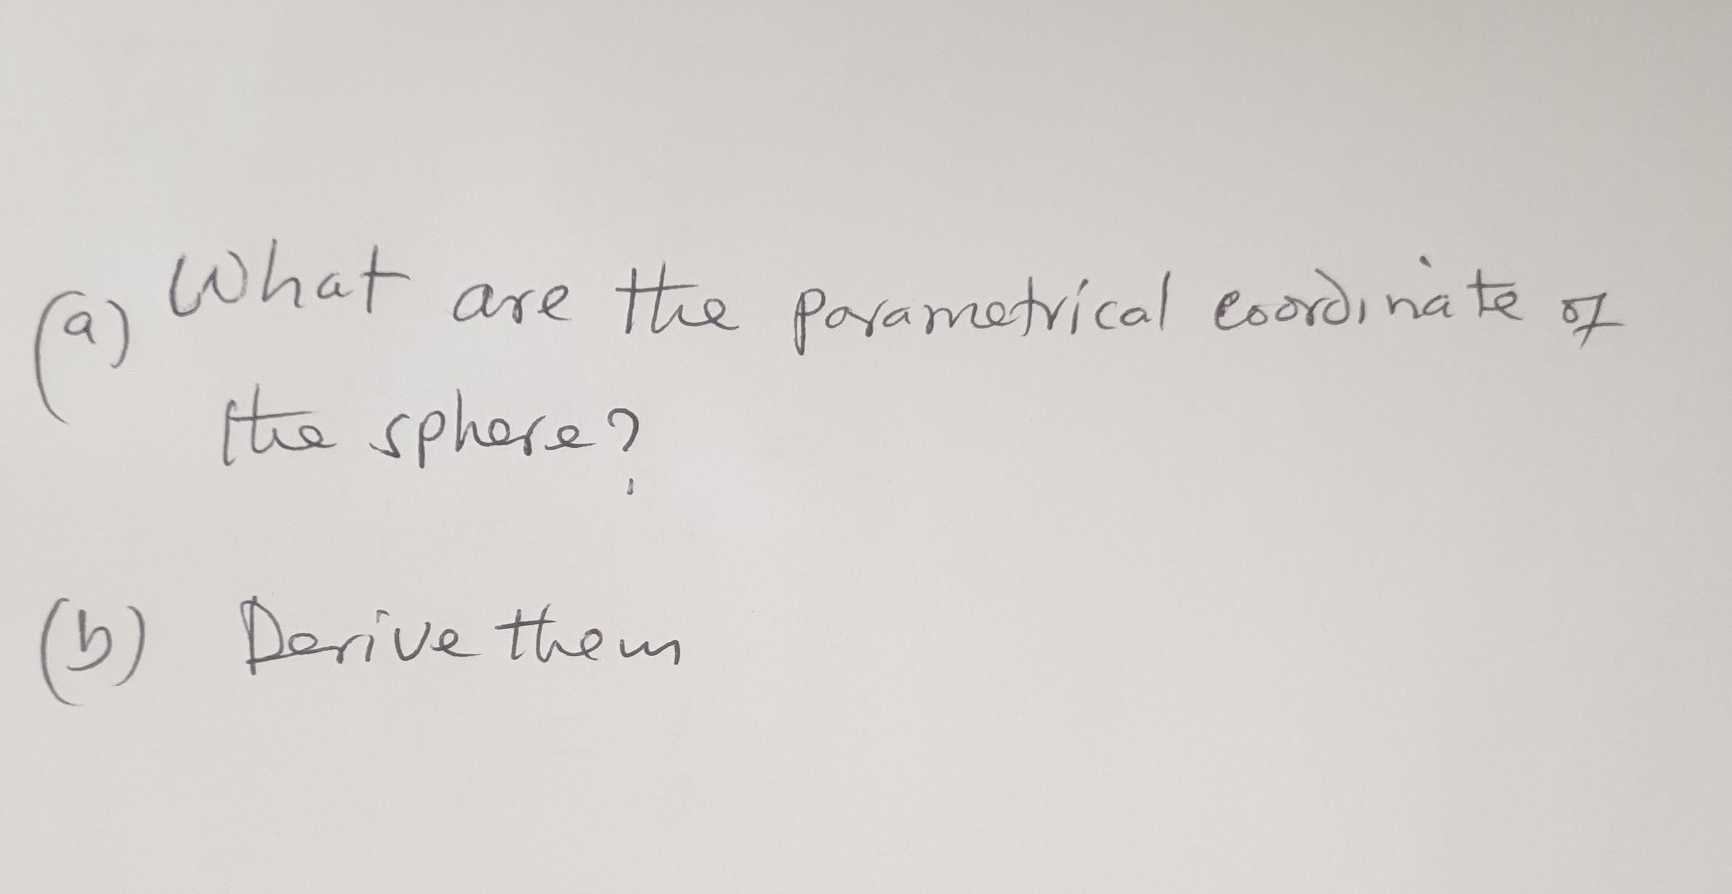 (a) What are the parametrical coordinate of
the sphere?
(b) Derive them